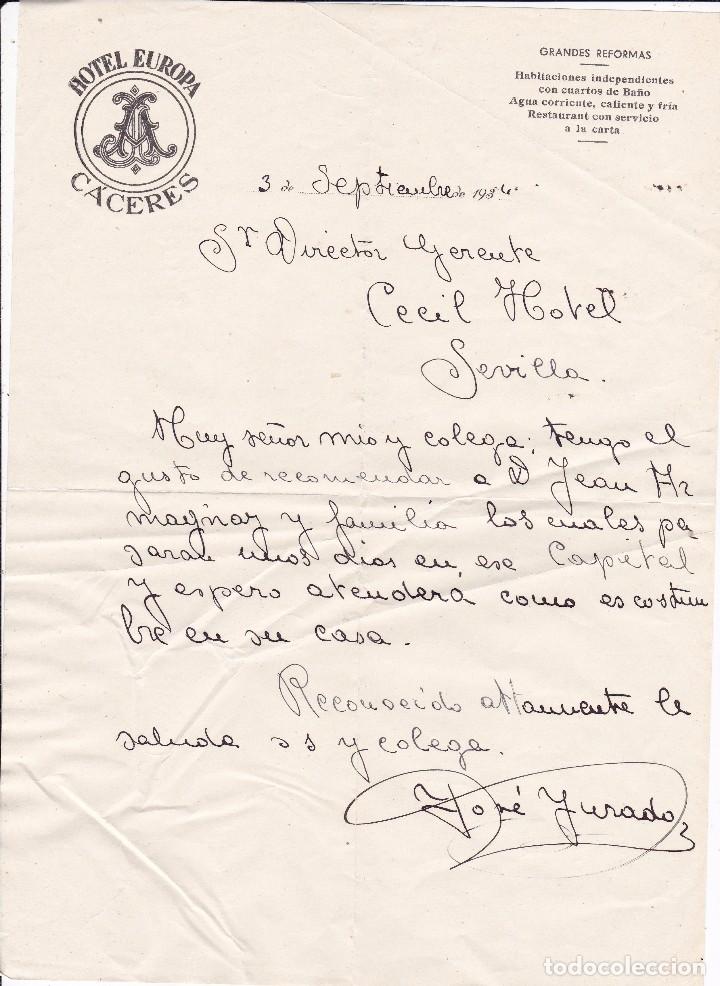 HOTEL EUROPA
CACERES
GRANDES REFORMAS
Habitaciones independientes
con cuartos de Baño
Agua corriente, caliente y fría
Restaurant con servicio
a la carta
3 de Septiembre de 1934
Sr Director Gerente
Cecil Hotel
Sevilla.
Muy señor mio y colega; tengo el
gusto de recomendar a D Jean Ar
magnaz y familia los cuales pa
saran unos dios en, ese Capital
y espero atenderá como es costum
bre en su casa.
Reconocido attamente le
saluda ss y colega.
José Jurado
todocoleccion